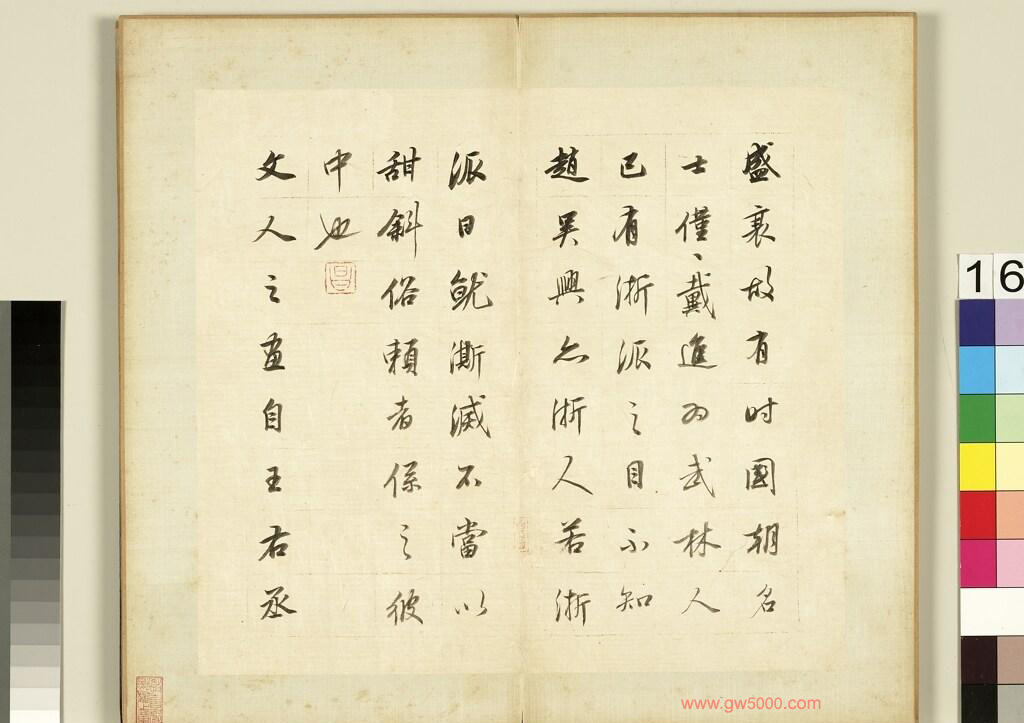 盛衰故有时國朝名
士僅、戴進為武林人
已有浙派之目不知
趙吴興亦浙人若浙
派日就澌滅不當以
甜斜俗賴者係之彼
中也
文人之畫自王右丞
16
www.gw5000.com